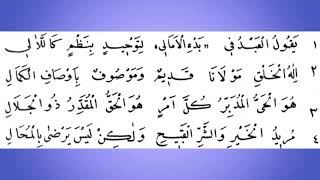 ١ يَقُولُ الْعَبْدُ فِي «بَدْءِ الْأَمَالِي» لِتَوْحِيدٍ بِنَظْمٍ كَاللَّآلِي
٢ إِلٰهُ الْخَلْقِ مَوْلَانَا قَدِيمٌ وَمَوْصُوفٌ بِأَوْصَافِ الْكَمَالِ
٣ هُوَ الْحَيُّ الْمُدَبِّرُ كُلَّ أَمْرٍ هُوَ الْحَقُّ الْمُقَدِّرُ ذُو الْجَلَالِ
٤ مُرِيدُ الْخَيْرِ وَالشَّرِّ الْقَبِيحِ وَلٰكِنْ لَيْسَ يَرْضَى بِالْمُحَالِ